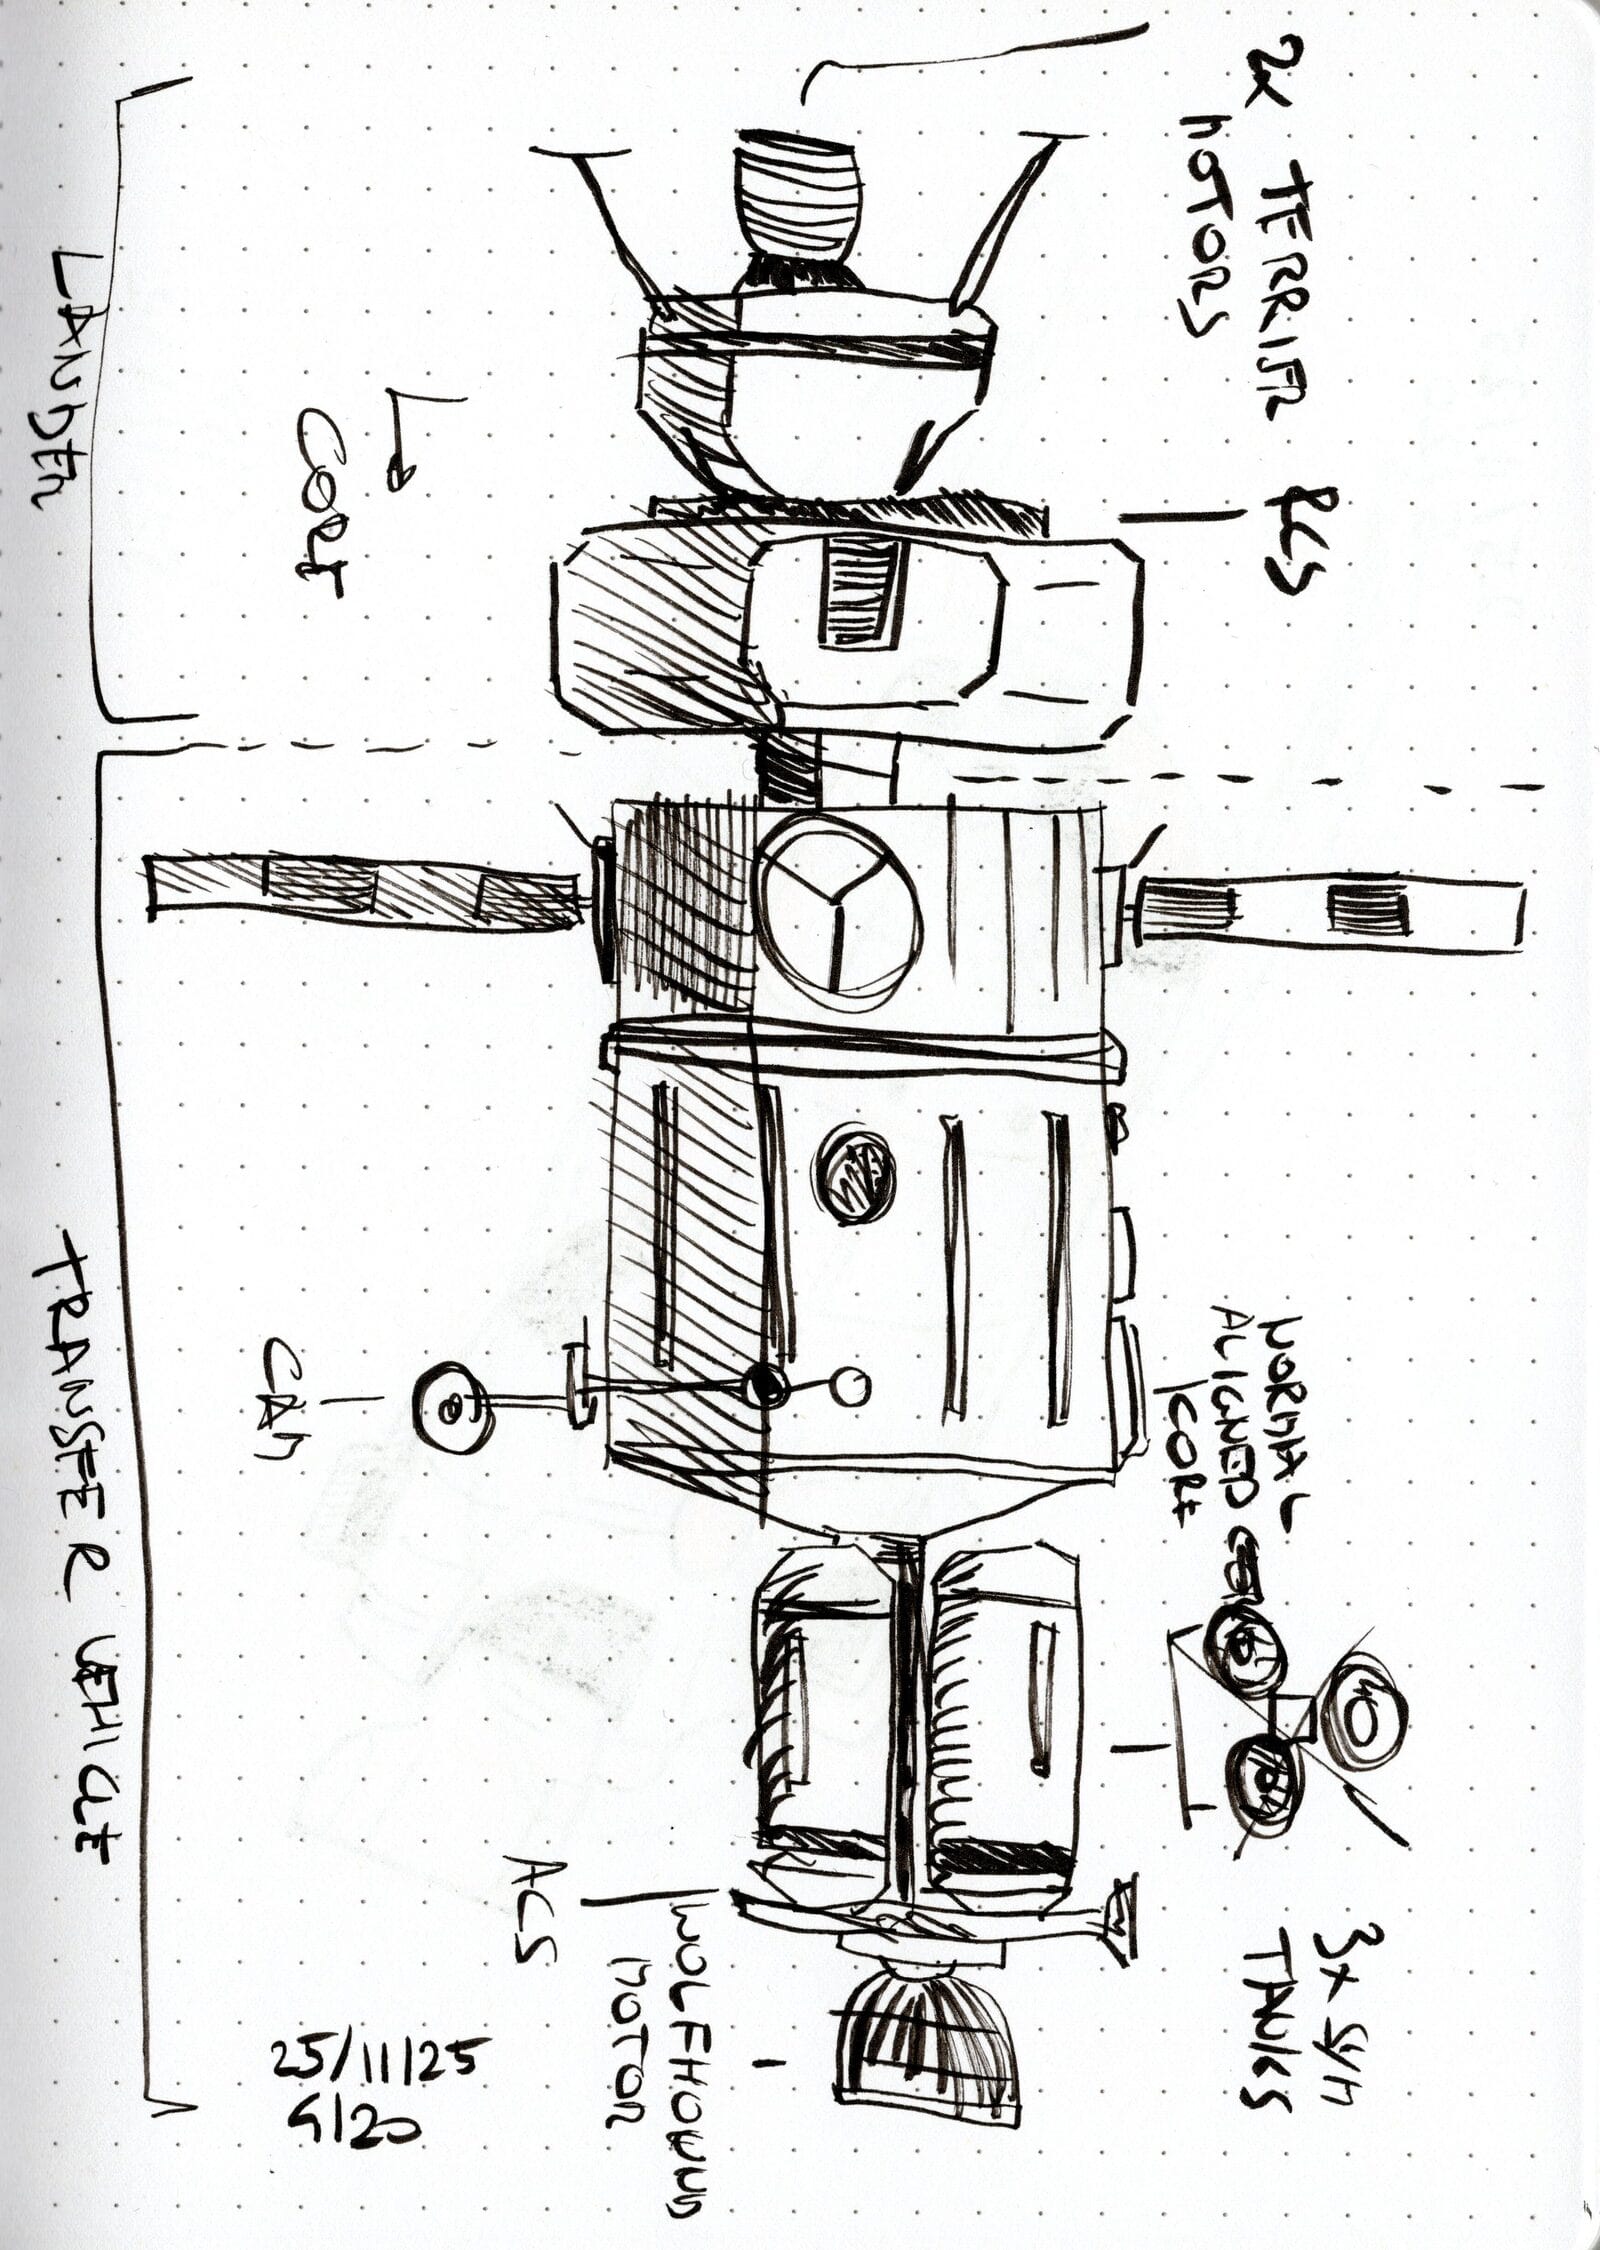 2x TERRIER
MOTORS
RCS
LANDER
CORE
NORMAL
ALIGNED
CORE
3x SYM
TANKS
CAM
TRANSFER VEHICLE
ACS
WOLFHOUND
MOTOR
25/11/25